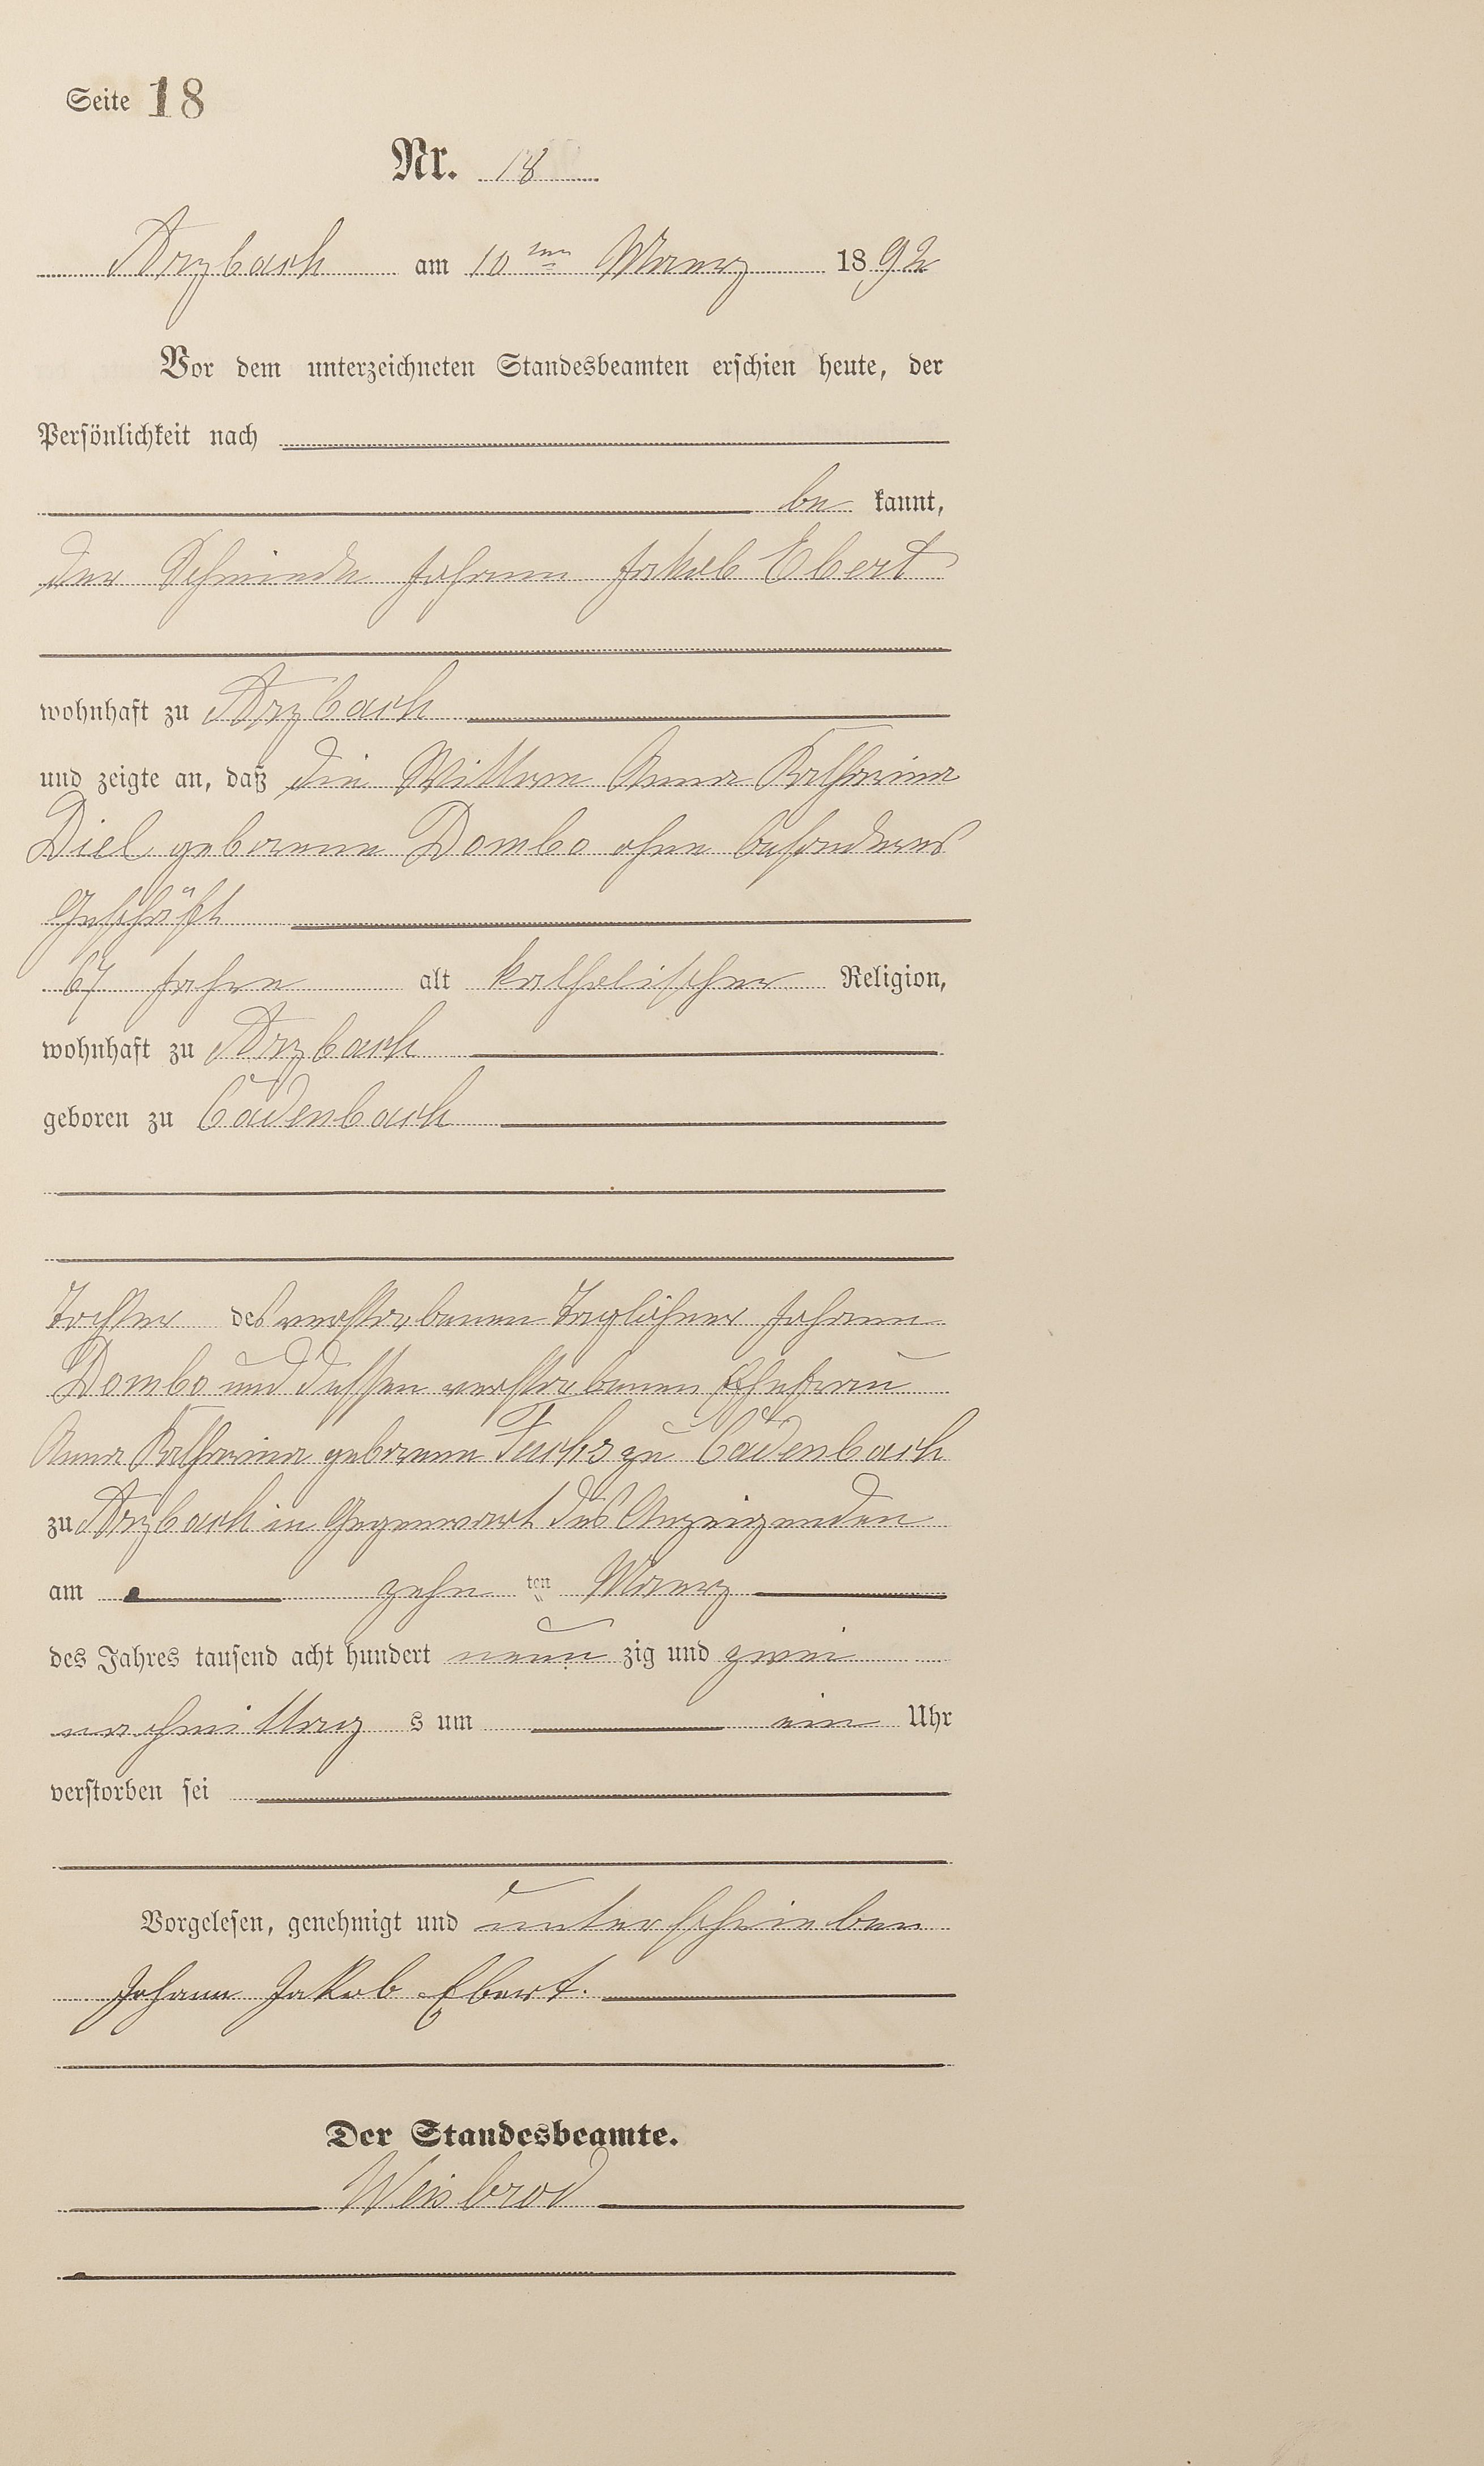 Seite 18
Nr. 18
Arzbach am 10ten Maerz 1892
Vor dem unterzeichneten Standesbeamten erschien heute, der
Persönlichkeit nach
be kannt,
der Schmiede Johann Jakob Ebert
wohnhaft zu Arzbach
und zeigte an, daß die Wittwe Anna Katharina
Diel geborene Dombo ohne besonderes
Geschäft
67 Jahre alt katholischer Religion,
wohnhaft zu Arzbach
geboren zu Cadenbach
Tochter des verstorbenen Taglöhner Johann
Dombo und dessen verstorbenen Ehefrau
Anna Katharina geborene Fuchs zu Cadenbach
zu Arzbach in Gegenwart des Anzeigenden
am zehn ten Maerz
des Jahres tausend acht hundert neun zig und zwei
nachmittag s um ein Uhr
verstorben sei
Vorgelesen, genehmigt und unterschrieben
Johann Jakob Ebert.
Der Standesbeamte.
Weisbrod